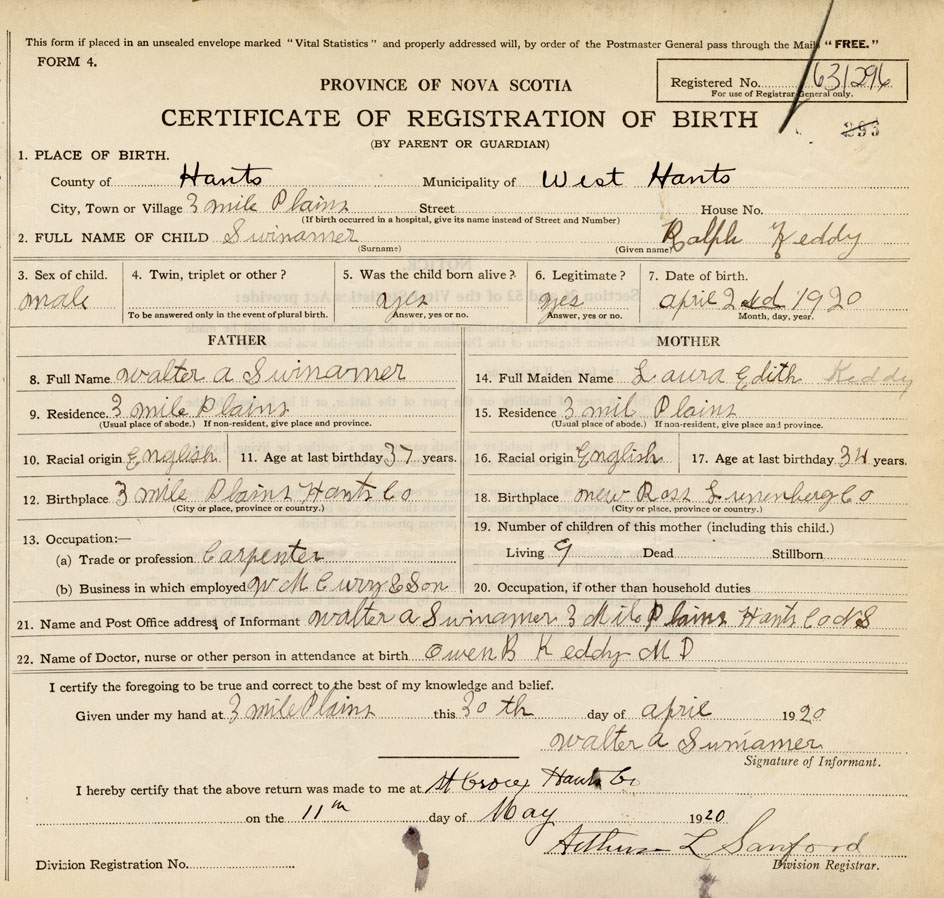 This form if placed in an unsealed envelope marked "Vital Statistics" and properly addressed will, by order of the Postmaster General pass through the Mail "FREE."
FORM 4.
PROVINCE OF NOVA SCOTIA
Registered No. 631296
For use of Registrar General only.
CERTIFICATE OF REGISTRATION OF BIRTH
295
(BY PARENT OR GUARDIAN)
1. PLACE OF BIRTH.
County of Hants Municipality of West Hants
City, Town or Village 3 mile Plains Street House No.
(If birth occurred in a hospital, give its name instead of Street and Number)
2. FULL NAME OF CHILD Swinamer Ralph Keddy
(Surname) (Given name)
3. Sex of child. 4. Twin, triplet or other? 5. Was the child born alive? 6. Legitimate? 7. Date of birth.
male yes yes april 2nd 1920
To be answered only in the event of plural birth. Answer, yes or no. Answer, yes or no. Month, day, year.
FATHER MOTHER
8. Full Name Walter a Swinamer 14. Full Maiden Name Laura Edith Keddy
9. Residence. 3 mile Plains 15. Residence 3 mil Plains
(Usual place of abode.) If non-resident, give place and province. (Usual place of abode.) If non-resident, give place and province.
10. Racial origin English 11. Age at last birthday 37 years. 16. Racial origin English 17. Age at last birthday 34 years.
12. Birthplace 3 mile Plains Hants Co 18. Birthplace new Ross Lunenberg Co
(City or place, province or country.) (City or place, province or country.)
13. Occupation:— 19. Number of children of this mother (including this child.)
(a) Trade or profession Carpenter Living 9 Dead Stillborn
(b) Business in which employed & Son 20. Occupation, if other than household duties
21. Name and Post Office address of Informant Walter a Swinamer 3 Mile Plains Hants Co NS
22. Name of Doctor, nurse or other person in attendance at birth Owen B Keddy M D
I certify the foregoing to be true and correct to the best of my knowledge and belief.
Given under my hand at 3 mile Plains this 30 th day of april 1920
Walter a Swinamer
Signature of Informant.
I hereby certify that the above return was made to me at St Croix Hants Co
on the 11th day of May 1920
Arthur L Sanford
Division Registration No. Division Registrar.